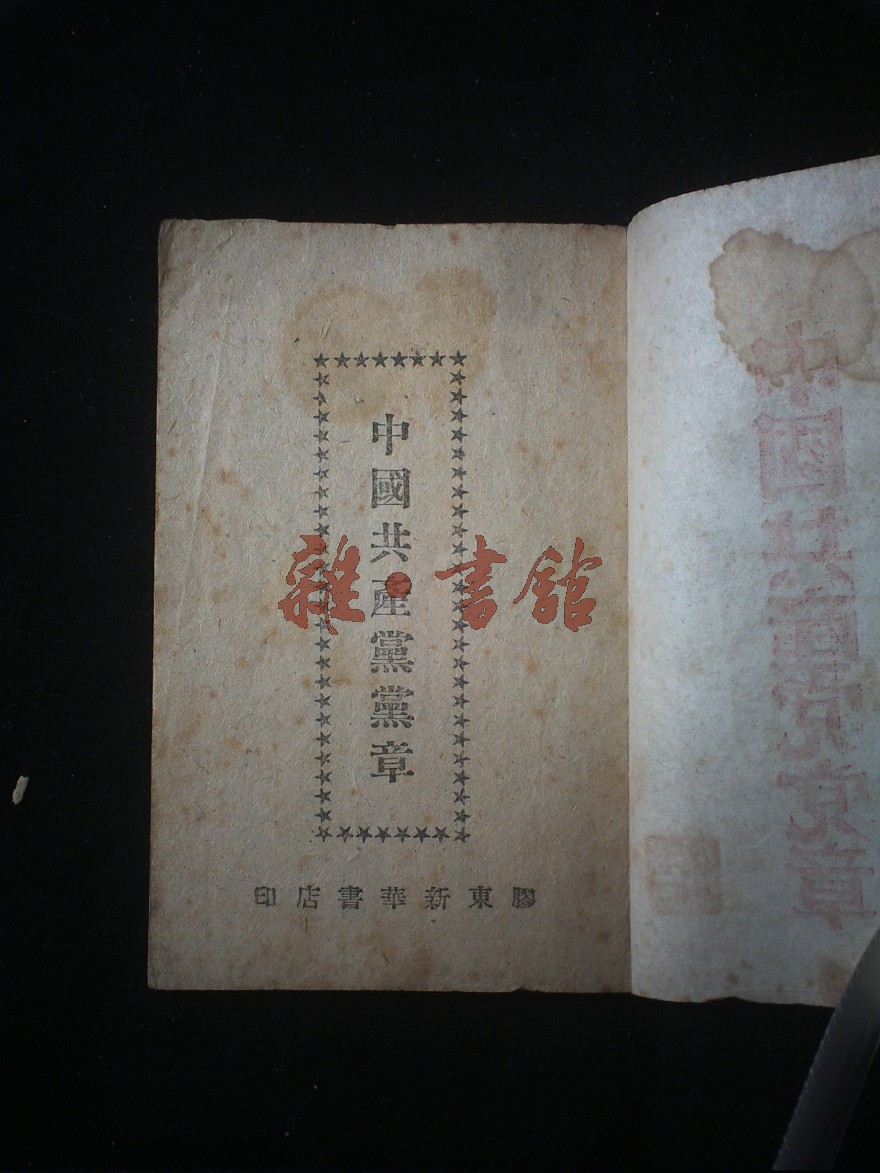 中國共產黨黨章
膠東新華書店印
雜·書館
中國共產党党章